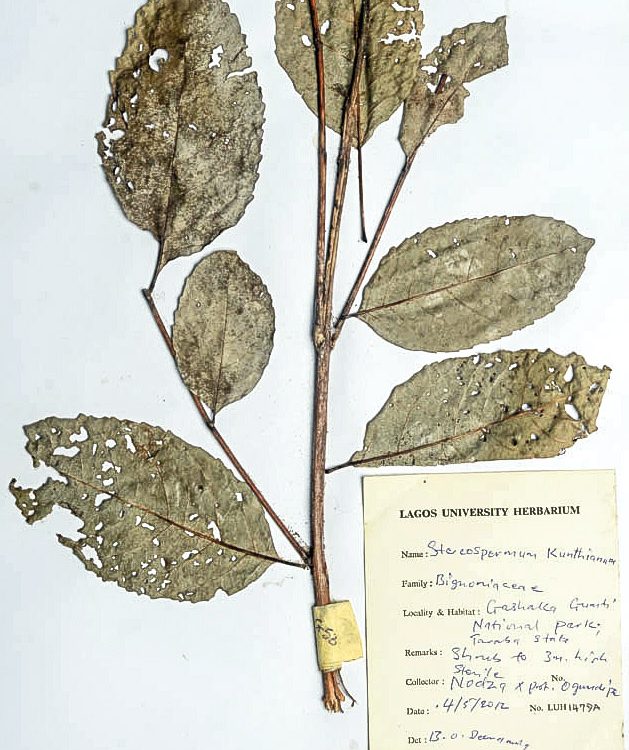 LAGOS UNIVERSITY HERBARIUM
Name: Stereospermum Kunthianum
Family: Bignoniaceae
Locality & Habitat: Gashaka Gumti
National park,
Taraba state
Remarks: Shrub to 3m. high
Sterile
No.
Collector: Nodza x prof. Ogundipe
Date: 4/5/2012 No. LUH 1479A
Det: B. O.